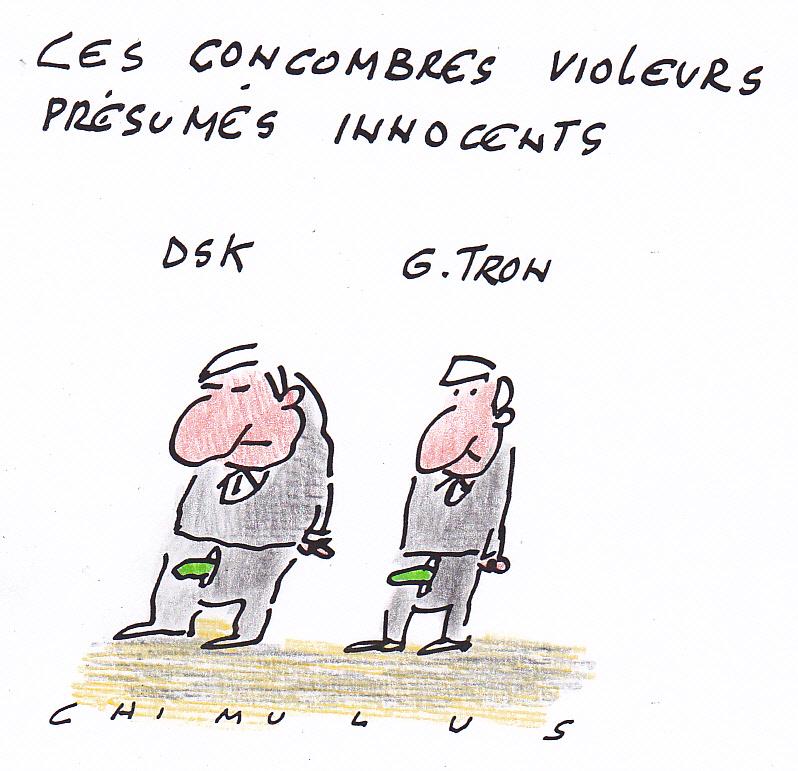 LES CONCOMBRES VIOLEURS
PRÉSUMÉS INNOCENTS
DSK
G. TRON
CHIMULUS